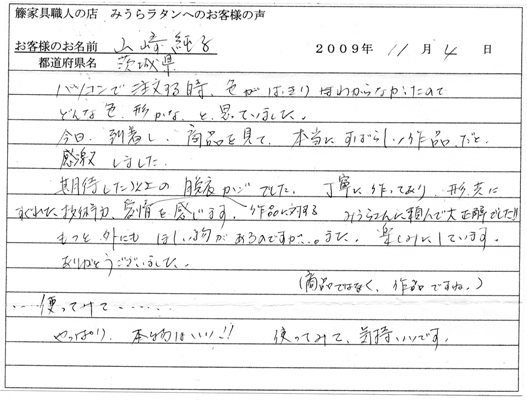 籐家具職人の店 みうらラタンへのお客様の声
お客様のお名前 山崎純子
都道府県名 茨城県 2009年 11月 4日
パソコンで注文する時、色がはっきりはわからなかったので
どんな色、形かな、と思っていました。
今日、到着し、商品を見て、本当にすばらしい作品だと
感激しました。
期待した以上の脱衣カゴでした。丁寧に作ってあり 形、共に
すぐれた技術力、愛情を感じます。作品に対する みうらさんに頼んで大正解でした!!
もっと、外にも ほしい物があるのですが…。また、楽しみにしています。
ありがとうございました。
(商品ではなく、作品ですね。)
……使ってみて……
やっぱり、本物はいい!! 使ってみて、気持いいです。